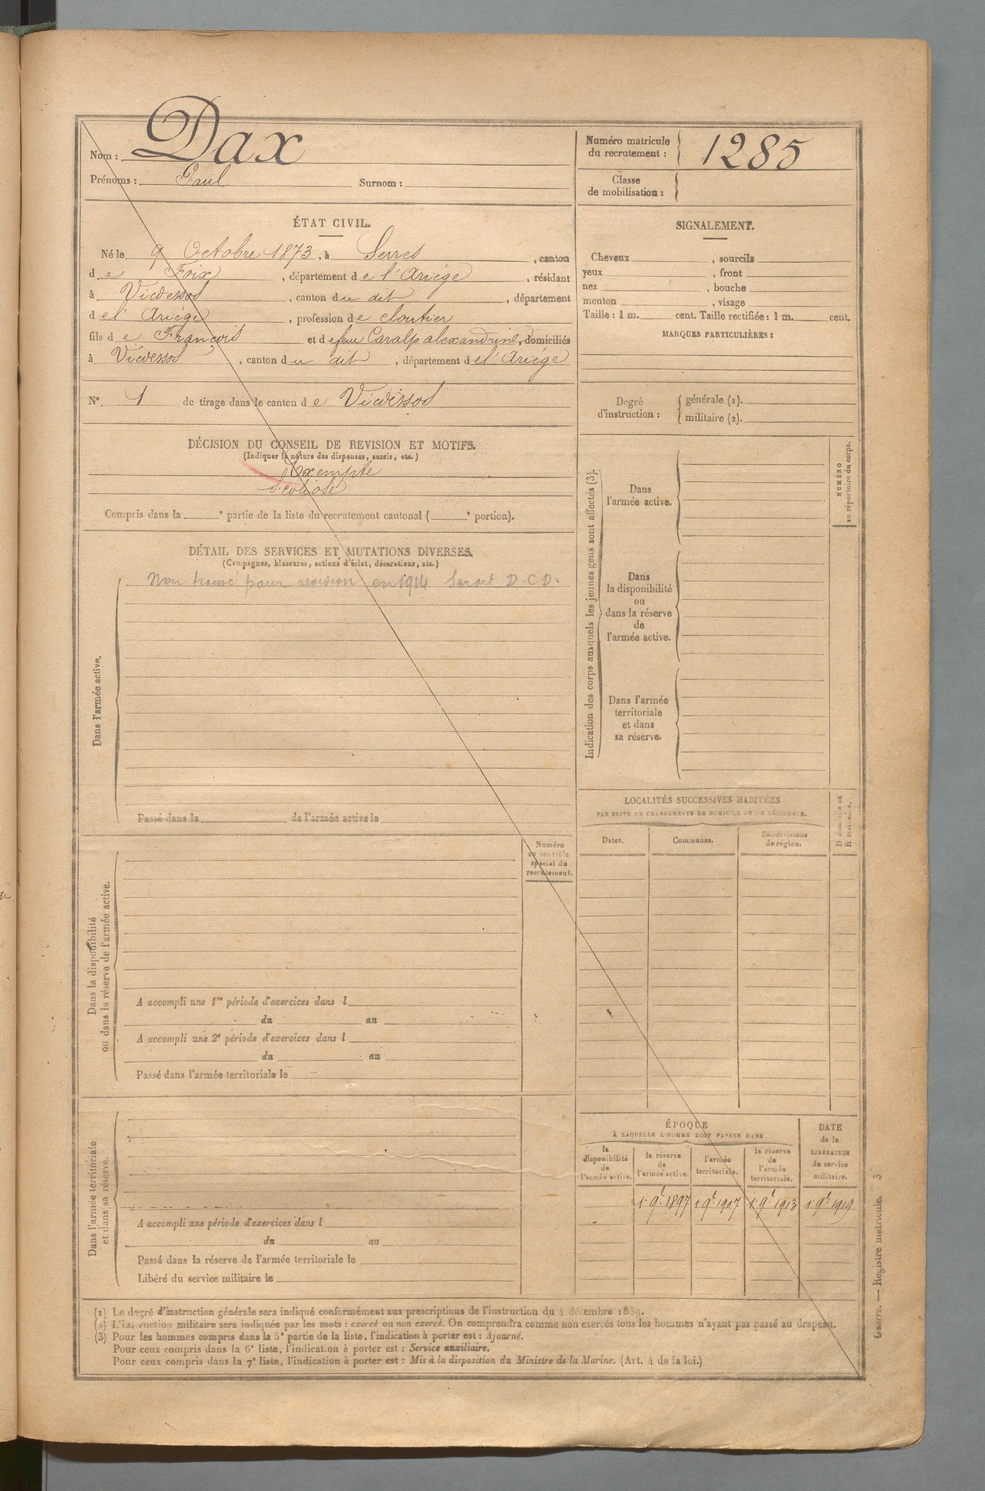 Nom : Dax
Prénoms : Paul Surnom :
Numéro matricule
du recrutement : 1285
Classe
de mobilisation :
ÉTAT CIVIL.
Né le 9 Octobre 1873, à Serres, canton
de Foix, département de l'Ariège, résidant
à Vicdessos, canton du dit, département
de l'Ariège, profession de cloutier
fils de François et de feue Caralp alexandrine, domiciliés
à Vicdessos, canton du dit, département de l'Ariège
N° 1 de tirage dans le canton de Vicdessos
DÉCISION DU CONSEIL DE REVISION ET MOTIFS.
(Indiquer la nature des dispenses, sursis, etc.)
Exempté
Scoliose
Compris dans la e partie de la liste du recrutement cantonal ( e portion).
DÉTAIL DES SERVICES ET MUTATIONS DIVERSES.
(Campagnes, blessures, actions d'éclat, décorations, etc.)
Non trouvé pour révision en 1914 Serait D.C.D.
Dans l'armée active.
Passé dans la de l'armée active le
Numéro
au contrôle
spécial du
recrutement.
Dans la disponibilité
ou dans la réserve de l'armée active.
A accompli une 1re période d'exercices dans l
du au
A accompli une 2e période d'exercices dans l
du au
Passé dans l'armée territoriale le
Dans l'armée territoriale
et dans sa réserve.
A accompli une période d'exercices dans l
du au
Passé dans la réserve de l'armée territoriale le
Libéré du service militaire le
SIGNALEMENT.
Cheveux , sourcils
yeux , front
nez , bouche
menton , visage
Taille : 1 m. cent. Taille rectifiée : 1 m. cent.
MARQUES PARTICULIÈRES :
Degré
d'instruction :
générale (1).
militaire (2).
Indication des corps auxquels les jeunes gens sont affectés (3).
NUMÉRO
au répertoire du corps.
Dans
l'armée active.
Dans
la disponibilité
ou
dans la réserve
de
l'armée active.
Dans l'armée
territoriale
et dans
sa réserve.
LOCALITÉS SUCCESSIVES HABITÉES
PAR SUITE DE CHANGEMENTS DE DOMICILE OU DE RÉSIDENCE.
D. domicile ou
R. résidence.
Dates. Communes. Subdivisions
de région.
ÉPOQUE
À LAQUELLE L'HOMME DOIT PASSER DANS
la
disponibilité
de
l'armée active.
la réserve
de
l'armée active.
l'armée
territoriale.
la réserve
de
l'armée
territoriale.
DATE
de la
LIBÉRATION
du service
militaire.
1 9e 1897 1 9e 1907 1 9e 1913 1 9e 1919
(1) Le degré d'instruction générale sera indiqué conformément aux prescriptions de l'instruction du 4 décembre 1889.
(2) L'instruction militaire sera indiquée par les mots : exercé ou non exercé. On comprendra comme non exercés tous les hommes n'ayant pas passé au drapeau.
(3) Pour les hommes compris dans la 5e partie de la liste, l'indication à porter est : Ajourné.
Pour ceux compris dans la 6e liste, l'indication à porter est : Service auxiliaire.
Pour ceux compris dans la 7e liste, l'indication à porter est : Mis à la disposition du Ministre de la Marine. (Art. 4 de la loi.)
Guerre. — Registre matricule. 3